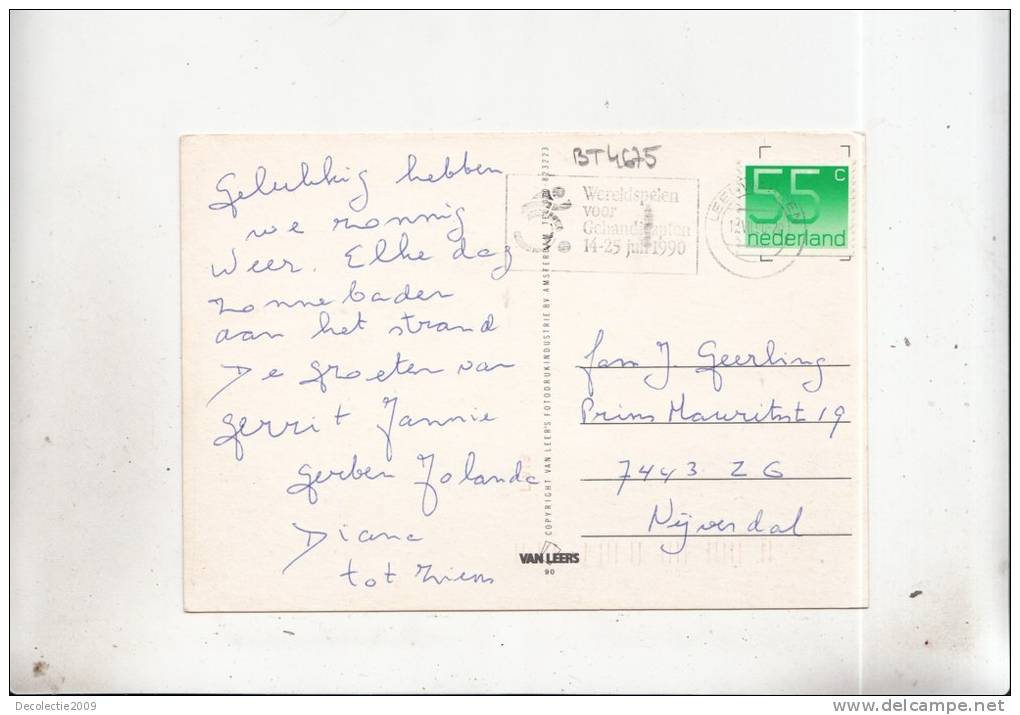 BT4675
Gelukkig hebben
we zonnig
weer. Elke dag
zonnebaden
aan het strand
De groeten van
Gerrit Jannie
Gerben Jolanda
Diana
tot ziens
Wereldspelen
voor
Gehandicapten
14-25 juli 1990
55 c
nederland
fam J. Geerling
Prins Mauritsst 19
7443 ZG
Nijverdal
COPYRIGHT VAN LEER'S FOTODRUKINDUSTRIE BV AMSTERDAM
VAN LEER'S
90
Decolectie2009
delcampe.net